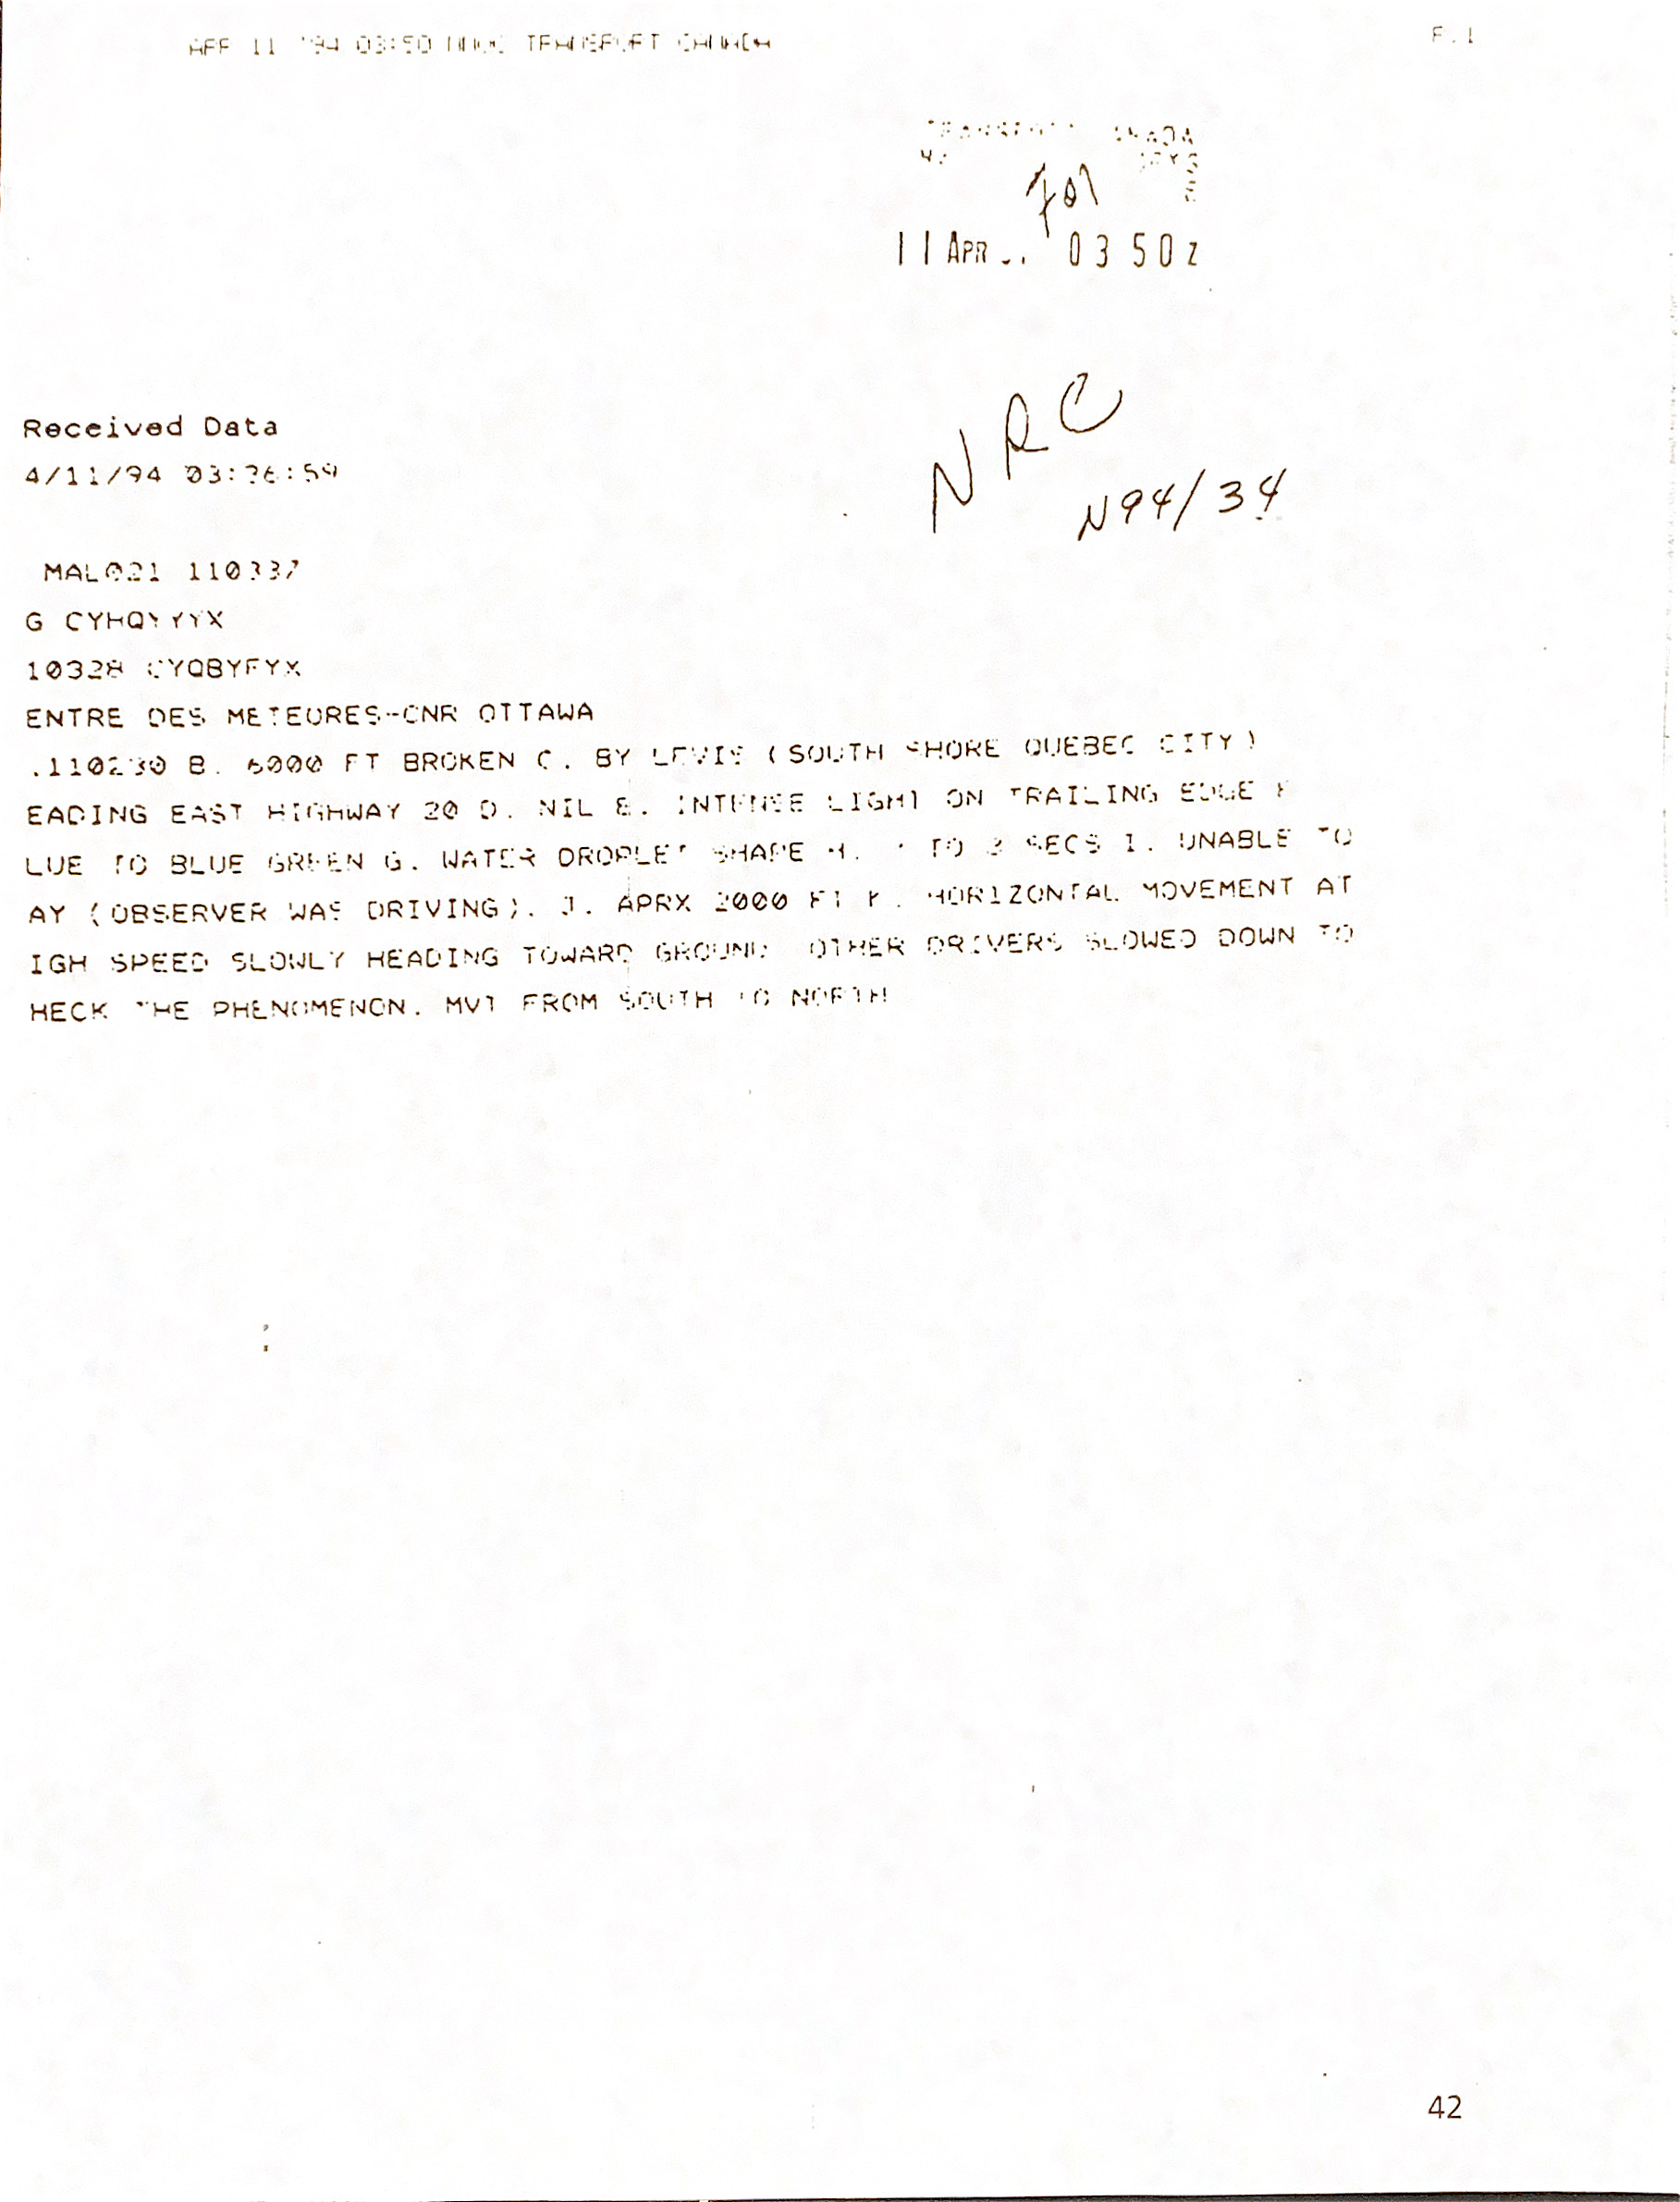 11 '94 03:50 TRANSPORT CANADA P.1
11 APR 0350Z
NRC
N94/34
Received Data
4/11/94
MAL021
G
10328 CYQBYFYX
ENTRE DES METEORES-CNR OTTAWA
.110230 B. 6000 FT BROKEN C. BY LEVIS (SOUTH SHORE QUEBEC CITY)
EADING EAST HIGHWAY 20 D. NIL E. INTENSE LIGHT ON TRAILING EDGE F
LUE TO BLUE GREEN G. WATER DROPLET SHAPE H. TO SECS I. UNABLE TO
AY (OBSERVER WAS DRIVING). J. APRX 2000 FT K. HORIZONTAL MOVEMENT AT
IGH SPEED SLOWLY HEADING TOWARD GROUND OTHER DRIVERS SLOWED DOWN TO
HECK THE PHENOMENON. MVT FROM SOUTH TO NORTH
42